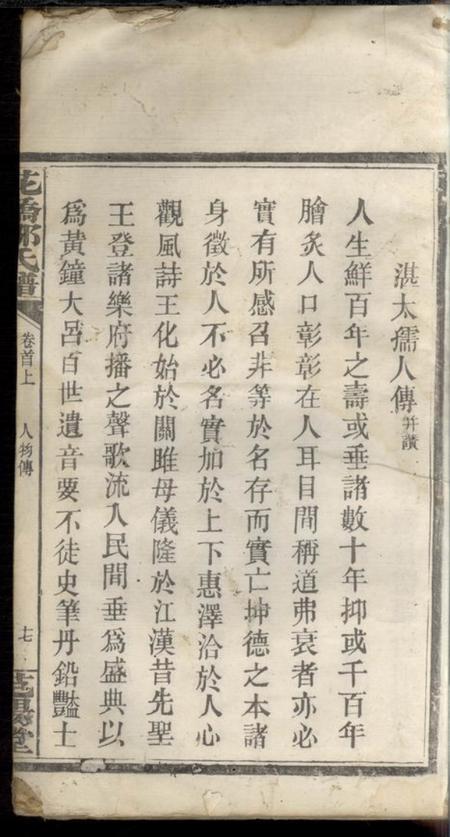 湛太孺人傳并讚
人生鮮百年之壽或垂諸數十年抑或千百年
膾炙人口彰彰在人耳目間稱道弗衰者亦必
實有所感召非等於名存而實亡坤德之本諸
身徵於人不必名實加於上下惠澤洽於人心
觀風詩王化始於關雎母儀隆於江漢昔先聖
王登諸樂府播之聲歌流入民間垂為盛典以
為黃鐘大呂百世遺音要不徒史筆丹鉛豔士
花橋鄒氏譜
卷首上
人物傳
七
堂